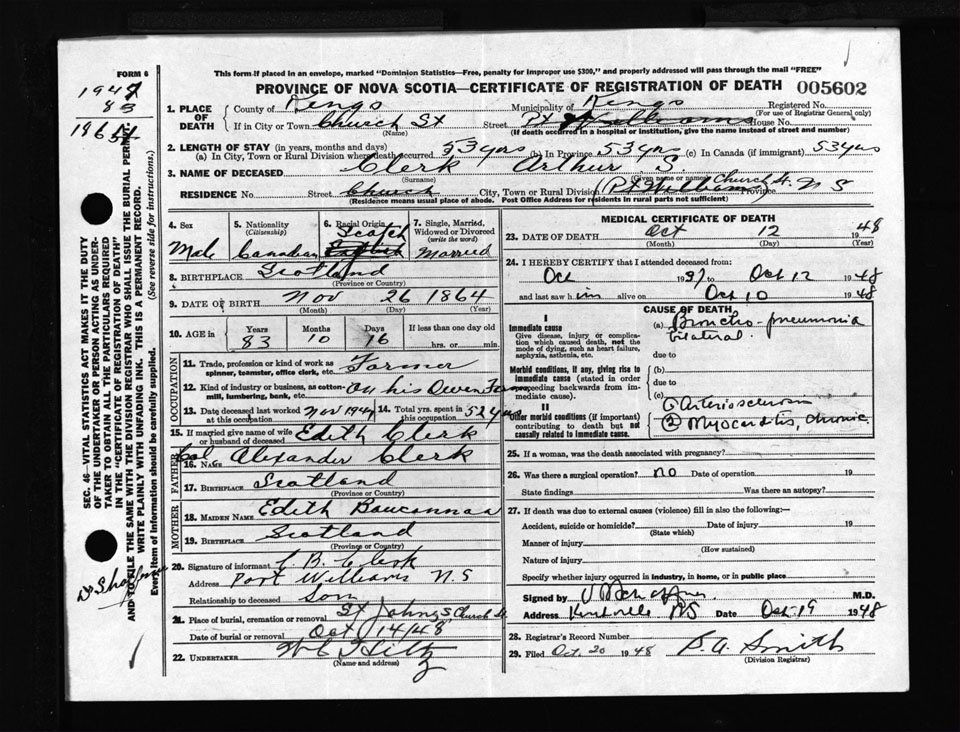 FORM 6
This form if placed in an envelope, marked "Dominion Statistics—Free, penalty for improper use $300," and properly addressed will pass through the mail "FREE"
PROVINCE OF NOVA SCOTIA—CERTIFICATE OF REGISTRATION OF DEATH 005602
1. PLACE OF DEATH County of Kings Municipality of Kings Registered No.
(For use of Registrar General only)
If in City or Town Church St Street Pt Williams House No.
(Name) (If death occurred in a hospital or institution, give the name instead of street and number)
2. LENGTH OF STAY (in years, months and days)
(a) In City, Town or Rural Division where death occurred 53 yrs (b) In Province 53 yrs (c) In Canada (if immigrant) 53 yrs
3. NAME OF DECEASED Clerk Arthur S
(Surname) (Given name or names)
RESIDENCE No. Street Church City, Town or Rural Division (Pt Williams) Church St. Province N S
(Residence means usual place of abode. Post Office Address for residents in rural parts not sufficient)
4. Sex 5. Nationality (Citizenship) 6. Racial Origin 7. Single, Married, Widowed or Divorced (write the word)
Male Canadian Scotch English Married
8. BIRTHPLACE Scotland
(Province or Country)
9. DATE OF BIRTH Nov 26 1864
(Month) (Day) (Year)
10. AGE in Years Months Days If less than one day old
83 10 16 hrs. or min.
OCCUPATION
11. Trade, profession or kind of work as spinner, teamster, office clerk, etc. Farmer
12. Kind of industry or business, as cotton-mill, lumbering, bank, etc. On his Owen Farm
13. Date deceased last worked at this occupation Nov 1947 14. Total yrs. spent in this occupation 52 yrs
15. If married give name of wife or husband of deceased Edith Clerk
FATHER
16. NAME Col Alexander Clerk
17. BIRTHPLACE Scotland
(Province or Country)
MOTHER
18. MAIDEN NAME Edith
19. BIRTHPLACE Scotland
(Province or Country)
20. Signature of informant C B Clerk
Address Port Williams N.S
Relationship to deceased Son
21. Place of burial, cremation or removal St Johns, Church St.
Date of burial or removal Oct 14/48
22. UNDERTAKER W C Hiltz
(Name and address)
MEDICAL CERTIFICATE OF DEATH
23. DATE OF DEATH Oct 12 1948
(Month) (Day) (Year)
24. I HEREBY CERTIFY that I attended deceased from:
Oct 1937 to Oct 12 1948
and last saw him alive on Oct 10 1948
CAUSE OF DEATH
I
Immediate cause
Give disease, injury or complication which caused death, not the mode of dying, such as heart failure, asphyxia, asthenia, etc.
(a) Broncho-pneumonia
bilateral.
due to
Morbid conditions, if any, giving rise to immediate cause (stated in order proceeding backwards from immediate cause).
(b)
due to
(c)
II
Other morbid conditions (if important) contributing to death but not causally related to immediate cause.
① Arteriosclerosis
② Myocarditis, chronic.
25. If a woman, was the death associated with pregnancy?
26. Was there a surgical operation? no Date of operation 19
State findings Was there an autopsy?
27. If death was due to external causes (violence) fill in also the following:—
Accident, suicide or homicide? Date of injury 19
(State which)
Manner of injury
(How sustained)
Nature of injury
Specify whether injury occurred in industry, in home, or in public place
Signed by M.D.
Address Kentville NS Date Oct-19 1948
28. Registrar's Record Number
29. Filed Oct. 20 1948 P. A. Smith
(Division Registrar)
SEC. 46—VITAL STATISTICS ACT MAKES IT THE DUTY
OF THE UNDERTAKER OR PERSON ACTING AS UNDER-
TAKER TO OBTAIN ALL THE PARTICULARS REQUIRED
IN THE "CERTIFICATE OF REGISTRATION OF DEATH"
AND TO FILE THE SAME WITH THE DIVISION REGISTRAR WHO SHALL ISSUE THE BURIAL PERMIT.
WRITE PLAINLY WITH UNFADING INK. THIS IS A PERMANENT RECORD.
Every item of information should be carefully supplied. (See reverse side for instructions.)